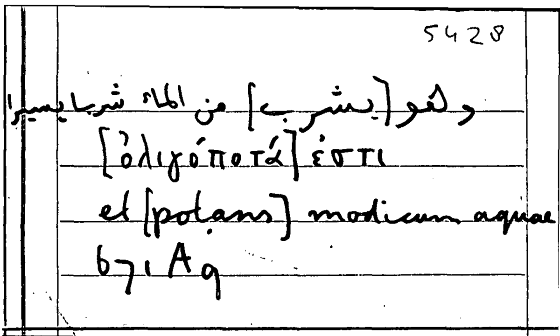 5428
وهو [يشرب] من الماء شربا يسيرا
[ὀλιγόποτά] ἐστι
et [potans] modicum aquae
671 Aq